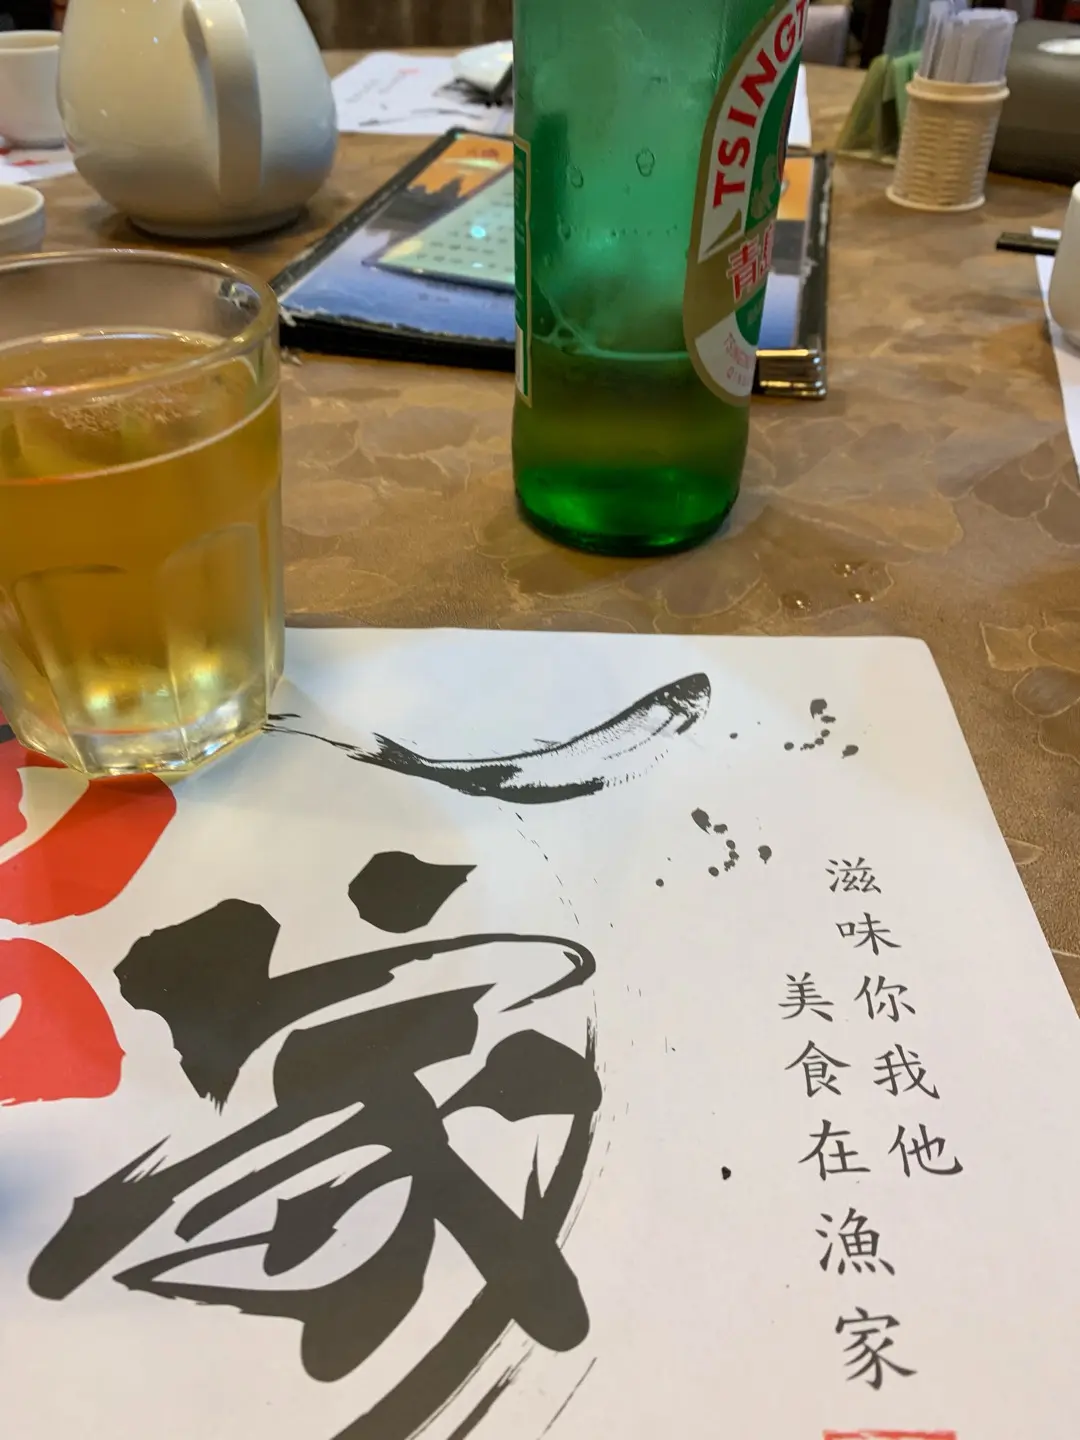 TSINGT
青島
家
滋味你我他
美食在漁家